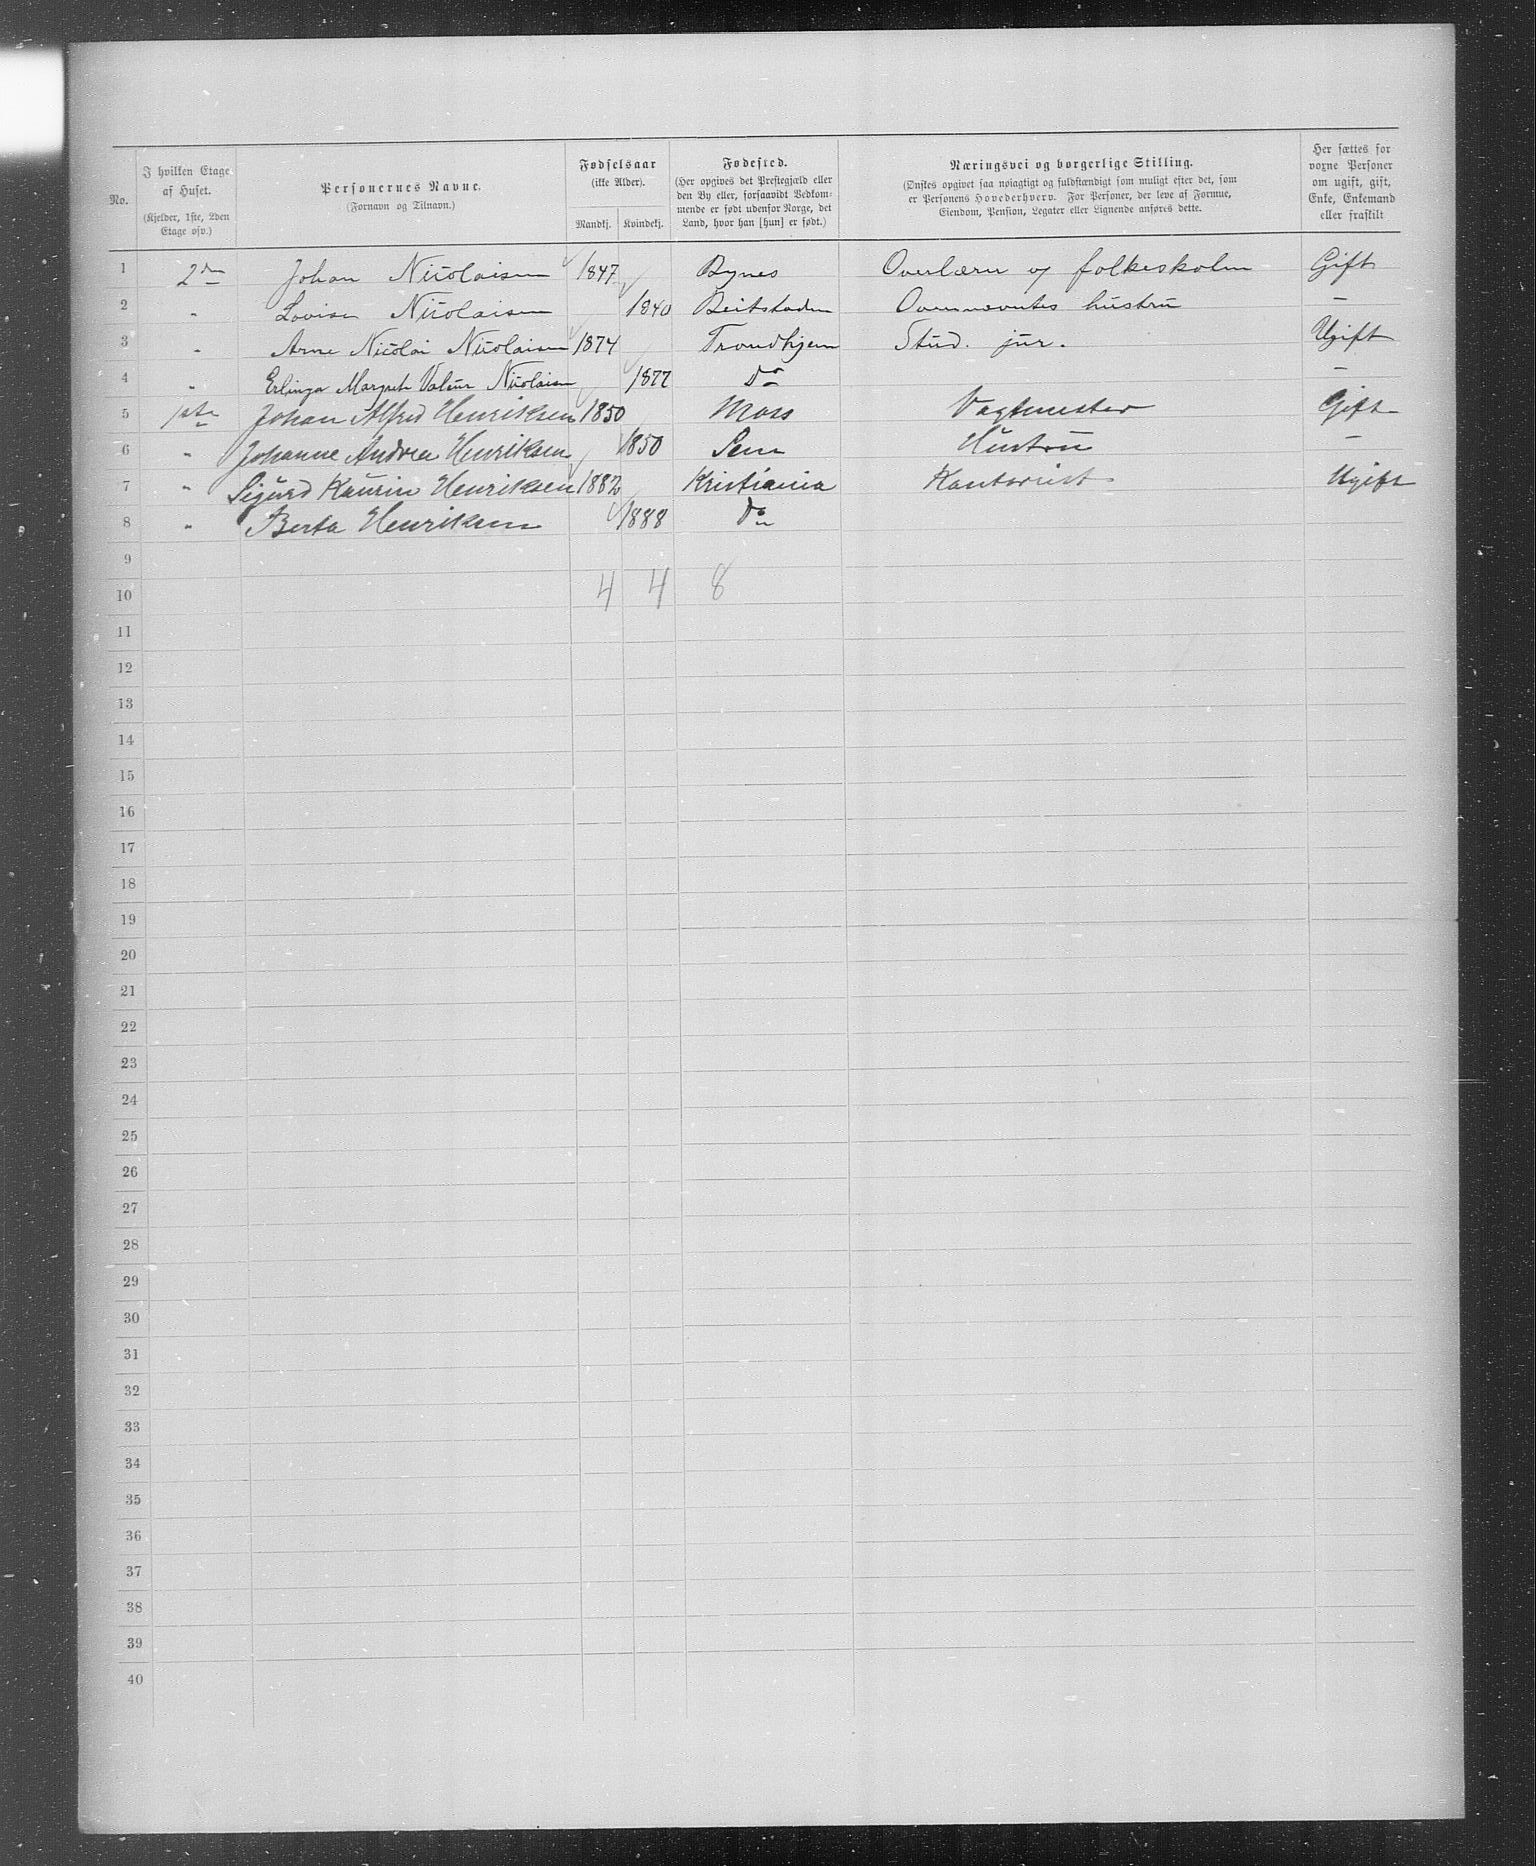 No.
I hvilken Etage af Huset. (Kjelder, 1ste, 2den Etage osv.)
Personernes Navne. (Fornavn og Tilnavn.)
Fødselsaar (ikke Alder).
Mandkj. Kvindekj.
Fødested. (Her opgives det Prestegjæld eller den By eller, forsaavidt Vedkommende er født udenfor Norge, det Land, hvor han [hun] er født.)
Næringsvei og borgerlige Stilling. (Ønskes opgivet saa nøiagtigt og fuldstændigt som muligt efter det, som er Personens Hovederhverv. For Personer, der leve af Formue, Eiendom, Pension, Legater eller Lignende anføres dette.
Her sættes for voxne Personer om ugift, gift, Enke, Enkemand eller fraskilt
1 2den Johan Nicolaisen 1847 Bynes Overlærer og folkeskolen Gift
2 " Lovise Nicolaisen 1840 Beitstaden Ovennævntes hustru —
3 " Arne Nicolai Nicolaisen 1874 Trondhjem Stud. jur. Ugift
4 " Erlinga Margreth Nicolaisen 1877 Do —
5 1ste Johan Alfred Henriksen 1850 Moss Vagtmester Gift
6 " Johanne Andrea Henriksen 1850 Sem Hustru —
7 " Sigurd Kaurin Henriksen 1882 Kristiania Kontorist Ugift
8 " Berta Henriksen 1888 Do
9
10 4 4 8
11
12
13
14
15
16
17
18
19
20
21
22
23
24
25
26
27
28
29
30
31
32
33
34
35
36
37
38
39
40